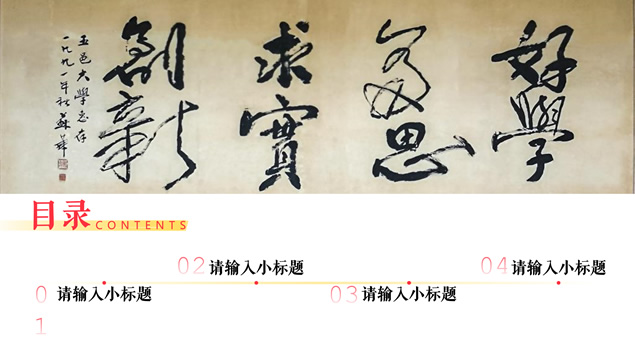 好學
多思
求實
創新
五邑大學惠存
一九九一年秋 蘇華
目录
CONTENTS
01 请输入小标题
02 请输入小标题
03 请输入小标题
04 请输入小标题